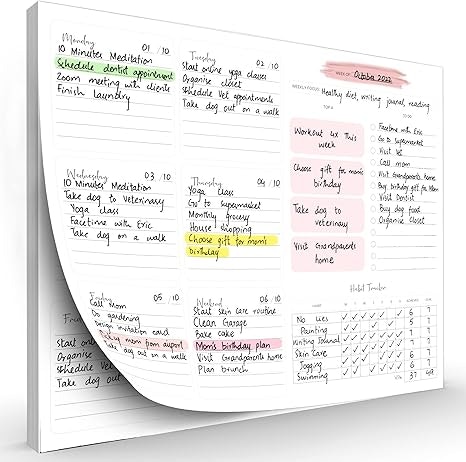 Monday 01 / 10
10 Minutes Meditation
Schedule dentist appointment
Zoom meeting with clients
Finish Laundry
Tuesday 02 / 10
Start online yoga classes
Organise closet
Schedule Vet appointments
Take dog out on a walk
WEEK OF: October 2022
WEEKLY FOCUS: Healthy diet, writing journal, reading
TOP 4
TO DO
Workout 4x This
week
Choose gift for mom's
birthday
Take dog to
veterinary
Visit Grandparents
home
Facetime with Eric
Go to Supermarket
Visit Vet
Call mom
Visit Grandparents home
Buy birthday gift for Mom
Visit Dentist
Buy dog food
Organise Closet
Wednesday 03 / 10
10 Minutes Meditation
Take dog to Veterinary
Yoga class
Facetime with Eric
Take dog on a walk
Thursday 04 / 10
Yoga class
Go to supermarket
Monthly grocery
House shopping
Choose gift for mom's
birthday
Friday 05 / 10
Call Mom
Do gardening
Design invitation card
Picking mom from airport
Take dog out on a walk
Weekend 06 / 10
Start skin care routine
Clean Garage
Bake cake
Mom's birthday plan
Visit Grandparents home
Plan brunch
Habit Tracker
HABIT M T W T F S S
No Lies
Painting
Writing Journal
Skin Care
Jogging
Swimming
37 49
Start onli
Organise
Schedule Vet
Take dog out